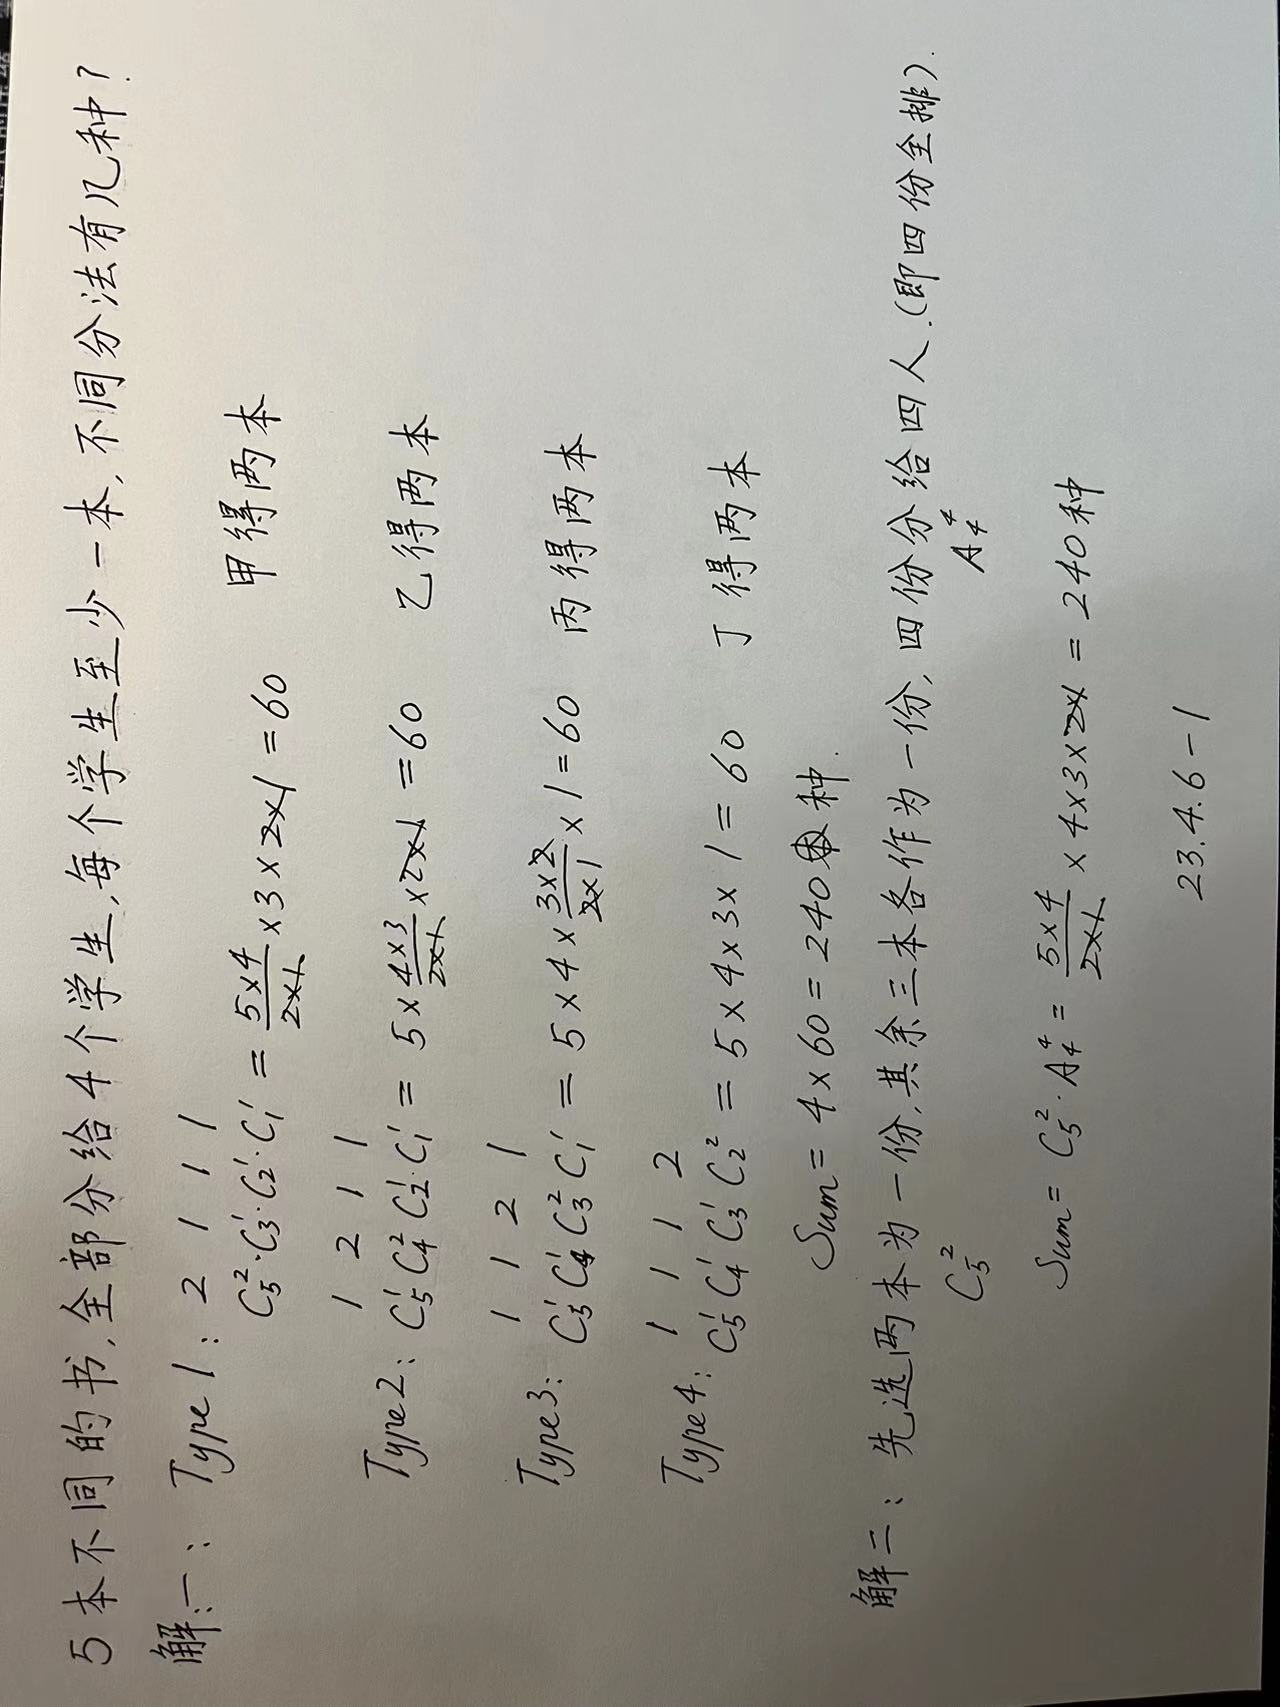 5本不同的书,全部分给4个学生,每个学生至少一本,不同分法有几种?
解:一: Type1: 2 1 1 1
C₅²·C₃¹·C₂¹·C₁¹ = (5×4)/(2×1) ×3×2×1 = 60 甲得两本
1 2 1 1
Type2: C₅¹ C₄² C₂¹·C₁¹ = 5×(4×3)/(2×1)×2×1 = 60 乙得两本
1 1 2 1
Type3: C₅¹ C₄¹ C₃² C₁¹ = 5×4×(3×2)/(2×1)×1=60 丙得两本
1 1 1 2
Type4: C₅¹ C₄¹ C₃¹ C₂² = 5×4×3×1= 60 丁得两本
Sum= 4×60=240种.
解二: 先选两本为一份,其余三本各作为一份,四份分给四人.(即四份全排).
C₅² A₄⁴
Sum= C₅²·A₄⁴= (5×4)/(2×1) ×4×3×2×1 = 240种
23.4.6-1